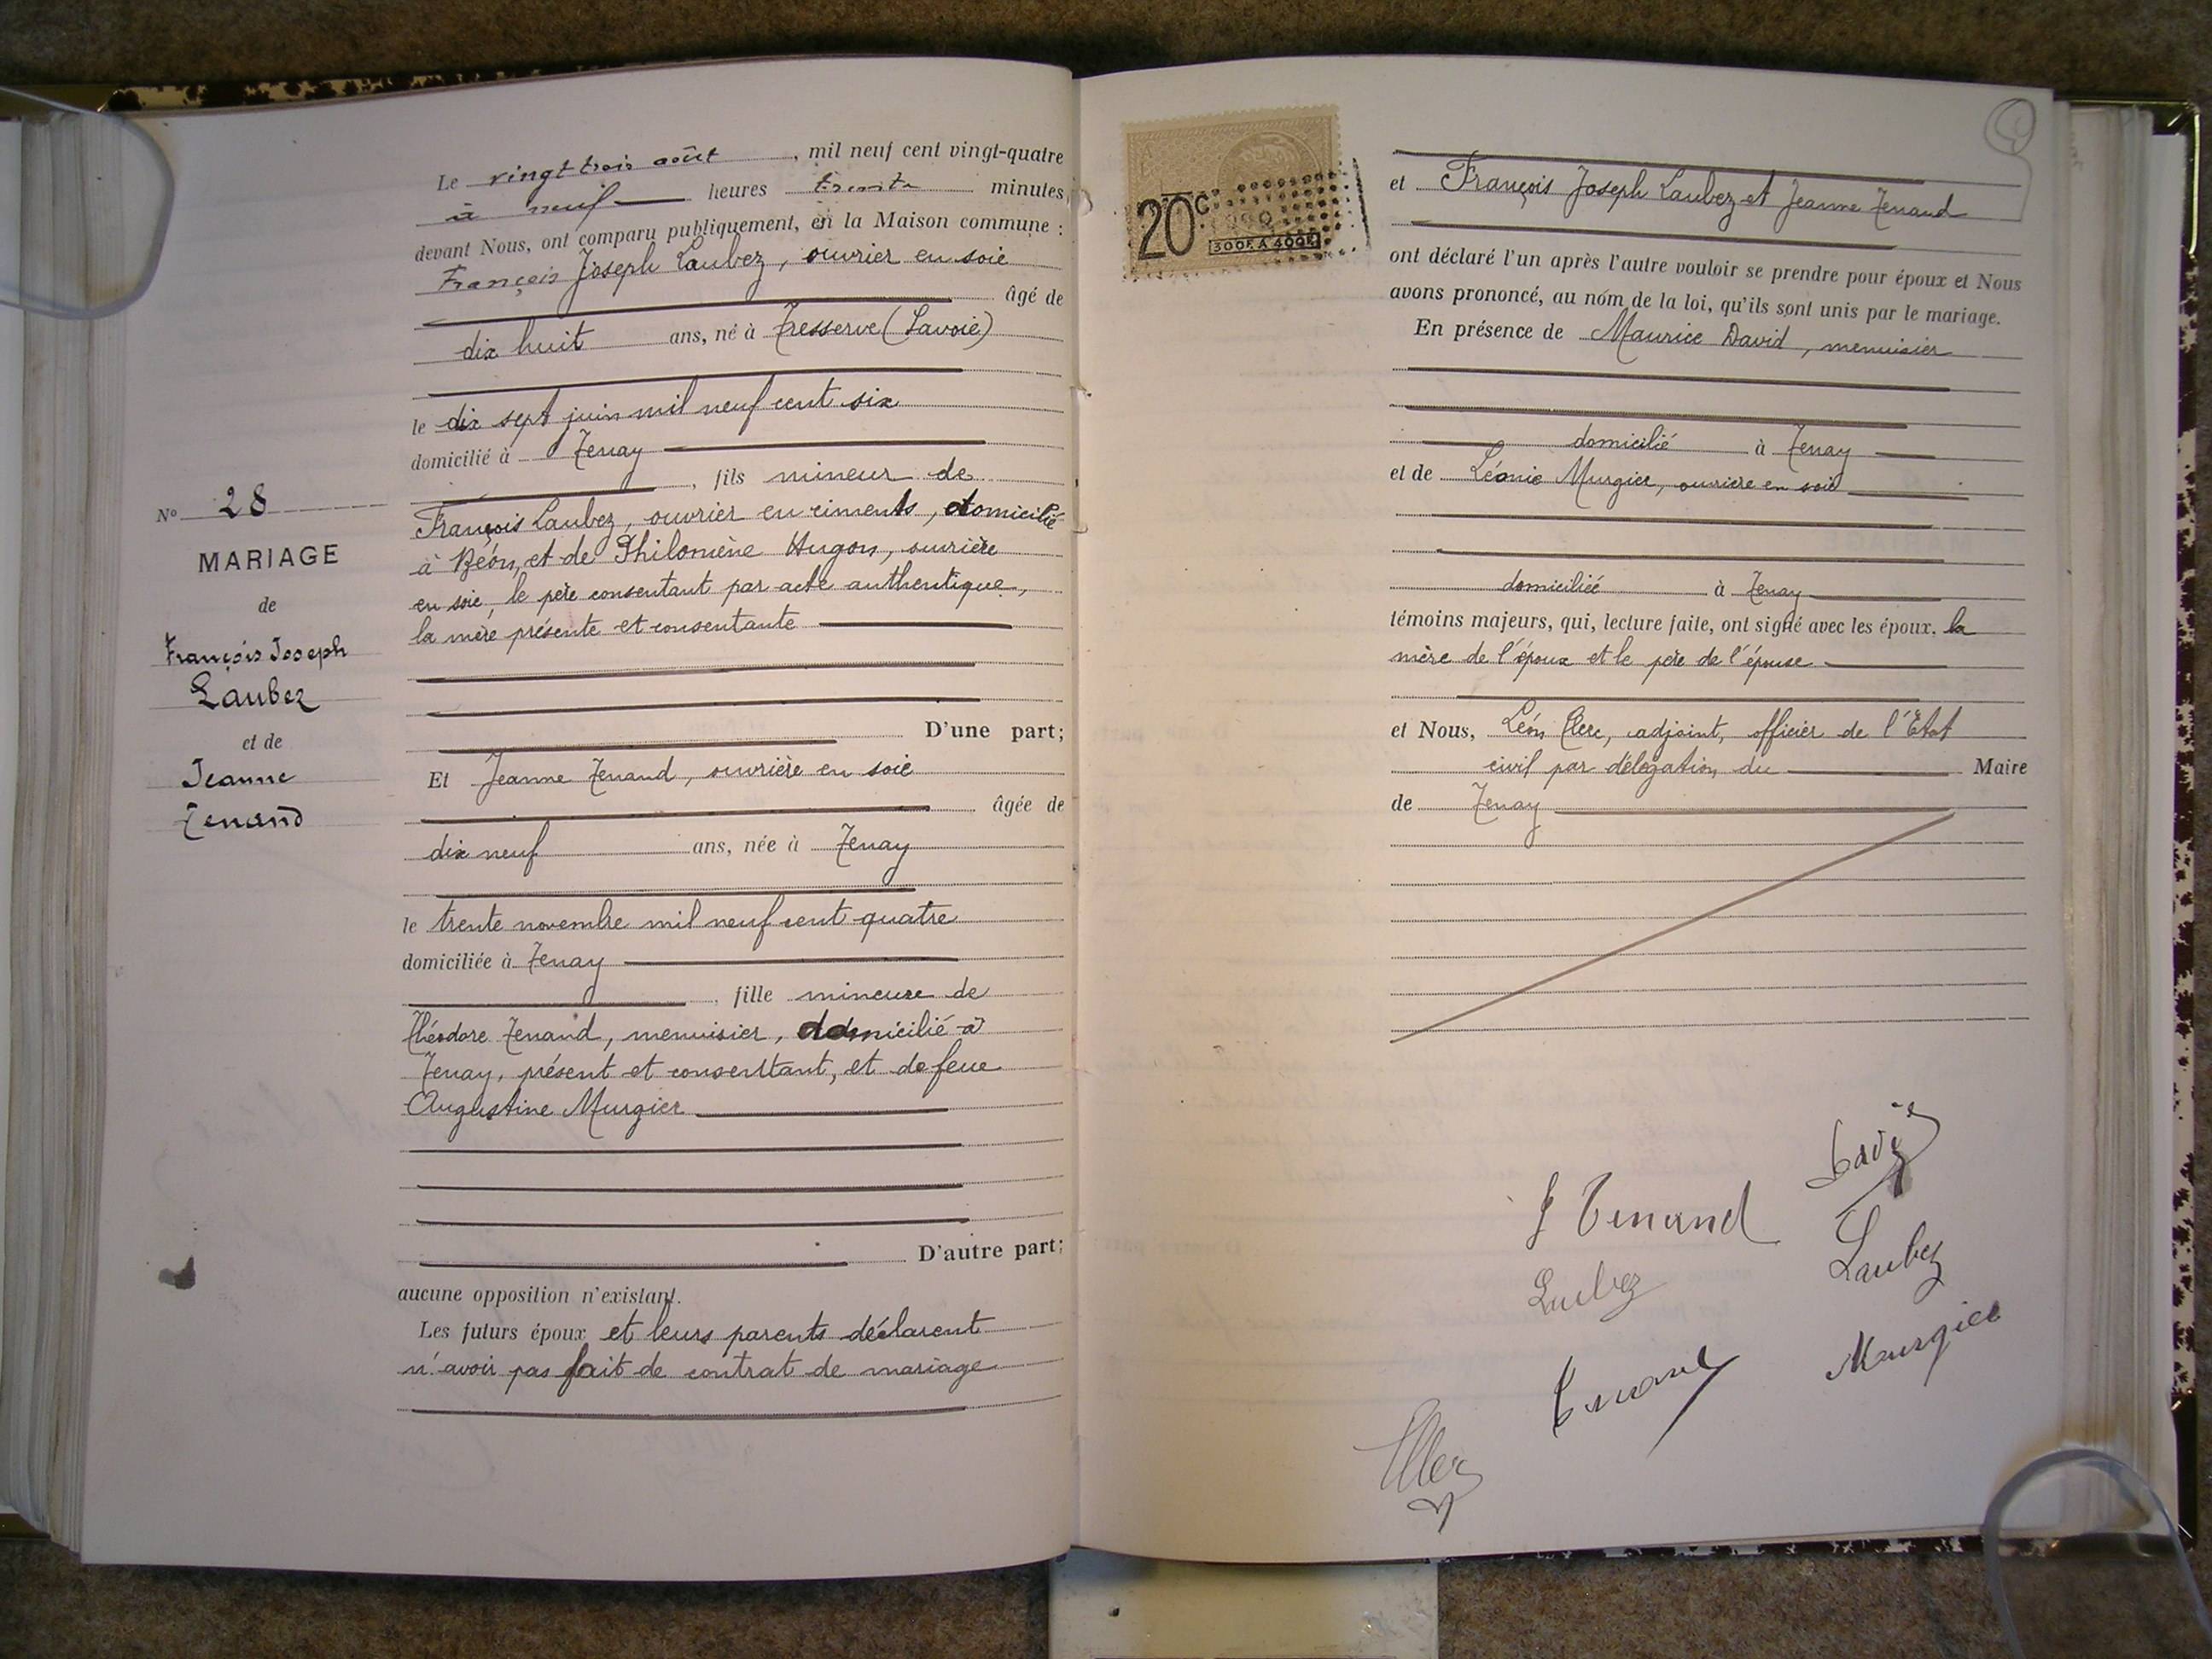 Le vingt trois août, mil neuf cent vingt-quatre
à neuf heures trente minutes
devant Nous, ont comparu publiquement, en la Maison commune :
François Joseph Laubez, ouvrier en soie
âgé de
dix huit ans, né à Tresserve (Savoie)
le dix sept juin mil neuf cent six
domicilié à Tenay
, fils mineur de
François Laubez, ouvrier en ciments, domicilié
à Béon, et de Philomène Hugon, ouvrière
en soie, le père consentant par acte authentique,
la mère présente et consentante
D'une part;
Et Jeanne Tenand, ouvrière en soie
âgée de
dix neuf ans, née à Tenay
le trente novembre mil neuf cent quatre
domiciliée à Tenay
, fille mineure de
Théodore Tenand, menuisier, domicilié à
Tenay, présent et consentant, et de feue
Augustine Murgier
D'autre part;
aucune opposition n'existant.
Les futurs époux et leurs parents déclarent
n'avoir pas fait de contrat de mariage
N° 28
MARIAGE
de
François Joseph
Laubez
et de
Jeanne
Tenand
20c
300F A 400F
et François Joseph Laubez et Jeanne Tenand
ont déclaré l'un après l'autre vouloir se prendre pour époux et Nous
avons prononcé, au nom de la loi, qu'ils sont unis par le mariage.
En présence de Maurice David, menuisier
domicilié à Tenay
et de Léonie Murgier, ouvrière en soie
domiciliée à Tenay
témoins majeurs, qui, lecture faite, ont signé avec les époux, la
mère de l'époux et le père de l'épouse
et Nous, Léon Clerc, adjoint, officier de l'État
civil par délégation du Maire
de Tenay
David
J Tenand
Laubez
Laubez
Murgier
Tenand